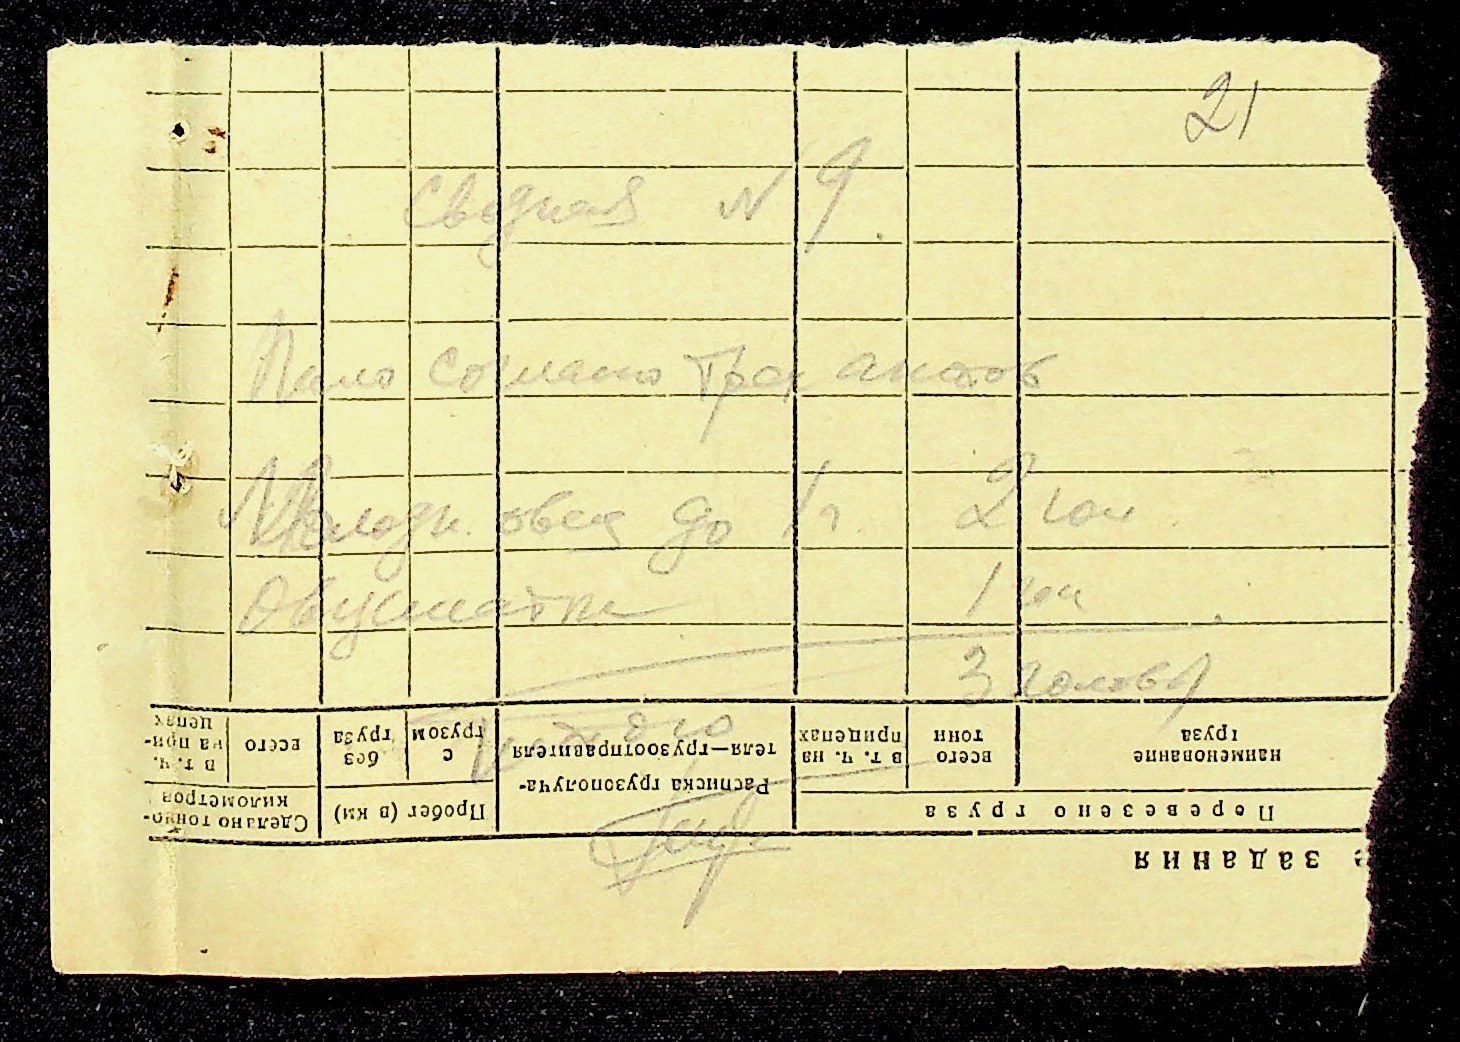 21
Сводная N 9
Пало согласно трех актов
Молодн. овец до 1 г. 2 гол.
Овцематки 1 гол
3 головы
Перевезено груза
наименование груза
всего тонн
в т. ч. на прицепах
Расписка грузополуча-
теля—грузоотправителя
Пробег (в км)
с грузом
без груза
Сделано тонно-
километров
всего
в т. ч. на при-
цепах
задания